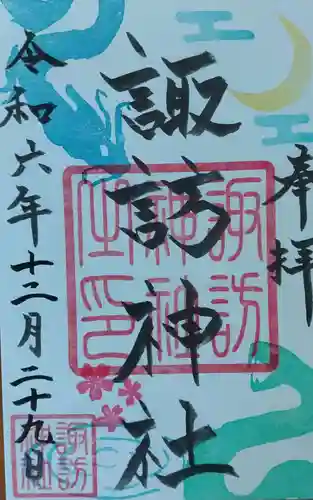 奉拝
諏訪神社
諏訪
神社
神社印
令和六年十二月二十九日
諏訪
神社